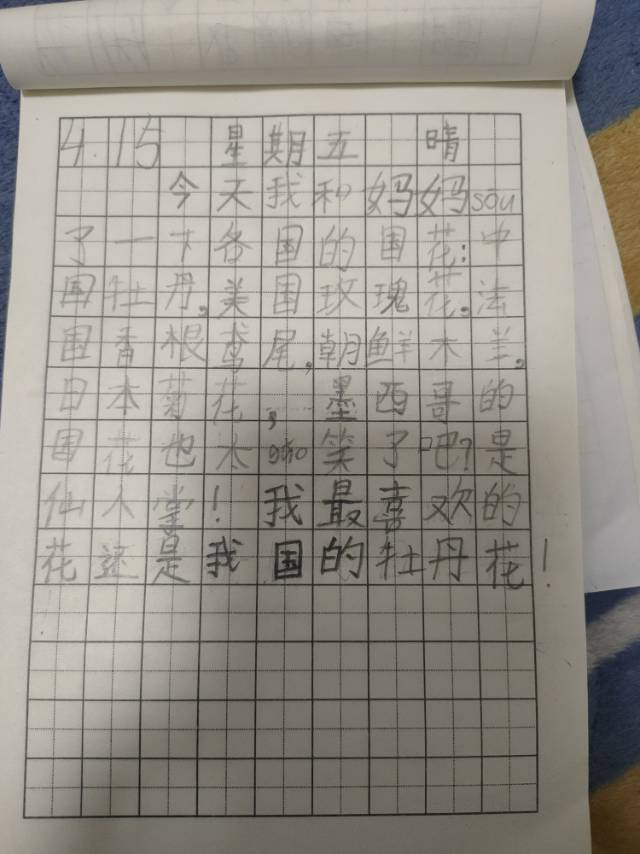 4.15 星期五 晴
今天我和妈妈sōu
了一下各国的国花:中
国牡丹,美国玫瑰花.法
国香根鸢尾,朝鲜木兰,
日本菊花,墨西哥的
国花也太gǎo笑了吧?是
仙人掌!我最喜欢的
花还是我国的牡丹花!